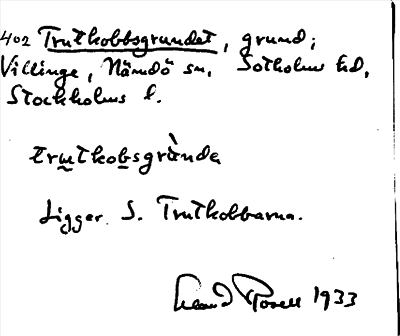 402 Trutkobbsgrundet, grund;
Villinge, Nämdö sn, Sotholms hd,
Stockholms l.
trutkobsgrùnda
Ligger S. Trutkobbarna.
1933